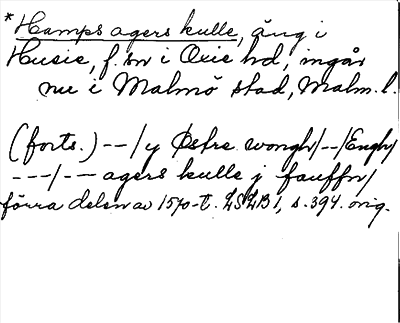 *Hamps agers kulle, äng i
Husie, f. sn i Oxie hd, ingår
nu i Malmö stad, Malm. l.
(forts.) --/y Østre wongh/--/Engh/
---/-- agers kulle j fauffn/
förra delen av 1570-t. LSLB 1, s. 394. orig.